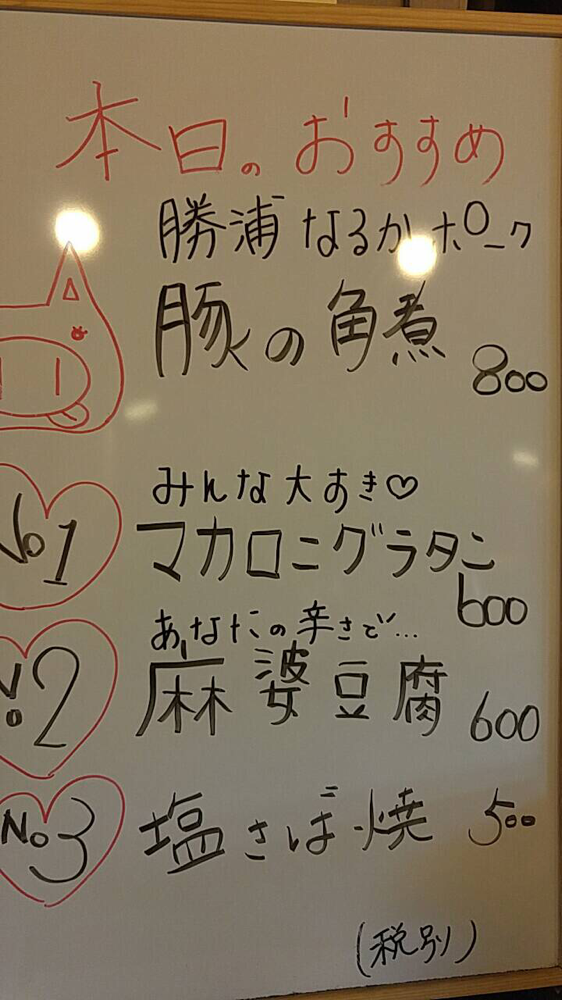 本日のおすすめ
勝浦なるかポーク
豚の角煮
800
みんな大すき♡
No1 マカロニグラタン
600
あなたの辛さで…
No.2 麻婆豆腐 600
No3 塩さば焼 500
(税別)